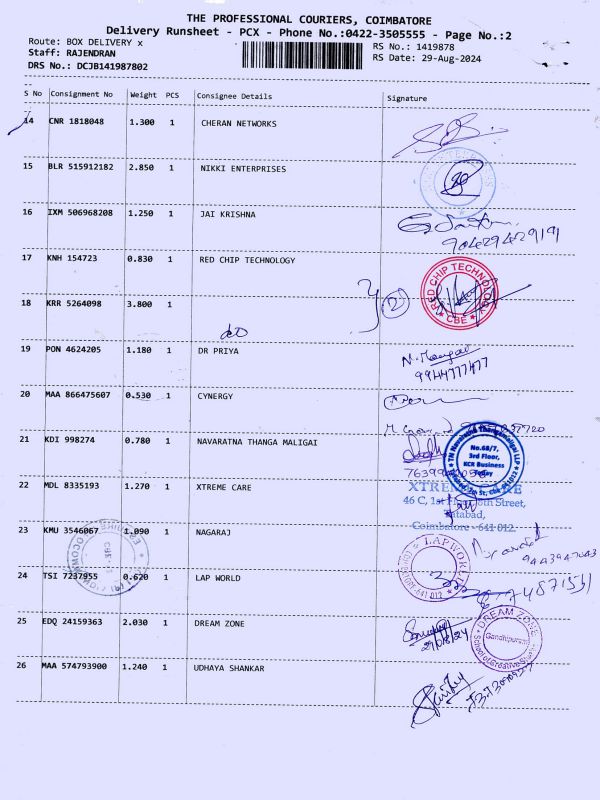 THE PROFESSIONAL COURIERS, COIMBATORE
Delivery Runsheet - PCX - Phone No.:0422-3505555 - Page No.:2
Route: BOX DELIVERY x RS No.: 1419878
Staff: RAJENDRAN RS Date: 29-Aug-2024
DRS No.: DCJB141987802
S No Consignment No Weight PCS Consignee Details Signature
14 CNR 1818048 1.300 1 CHERAN NETWORKS
15 BLR 515912182 2.850 1 NIKKI ENTERPRISES
16 IXM 506968208 1.250 1 JAI KRISHNA
9042942919
17 KNH 154723 0.830 1 RED CHIP TECHNOLOGY
RED CHIP TECHNOLOGY
CBE
18 KRR 5264098 3.800 1
do
19 PON 4624205 1.180 1 DR PRIYA
9944777477
20 MAA 866475607 0.530 1 CYNERGY
21 KDI 998274 0.780 1 NAVARATNA THANGA MALIGAI
No.68/7,
3rd Floor,
KCR Business
22 MDL 8335193 1.270 1 XTREME CARE
XTREME CARE
46 C, 1st Street,
Tatabad,
Coimbatore - 641 012.
23 KMU 3546067 1.090 1 NAGARAJ
24 TSI 7237955 0.620 1 LAP WORLD
25 EDQ 24159363 2.030 1 DREAM ZONE
DREAM ZONE
Gandhipuram
26 MAA 574793900 1.240 1 UDHAYA SHANKAR